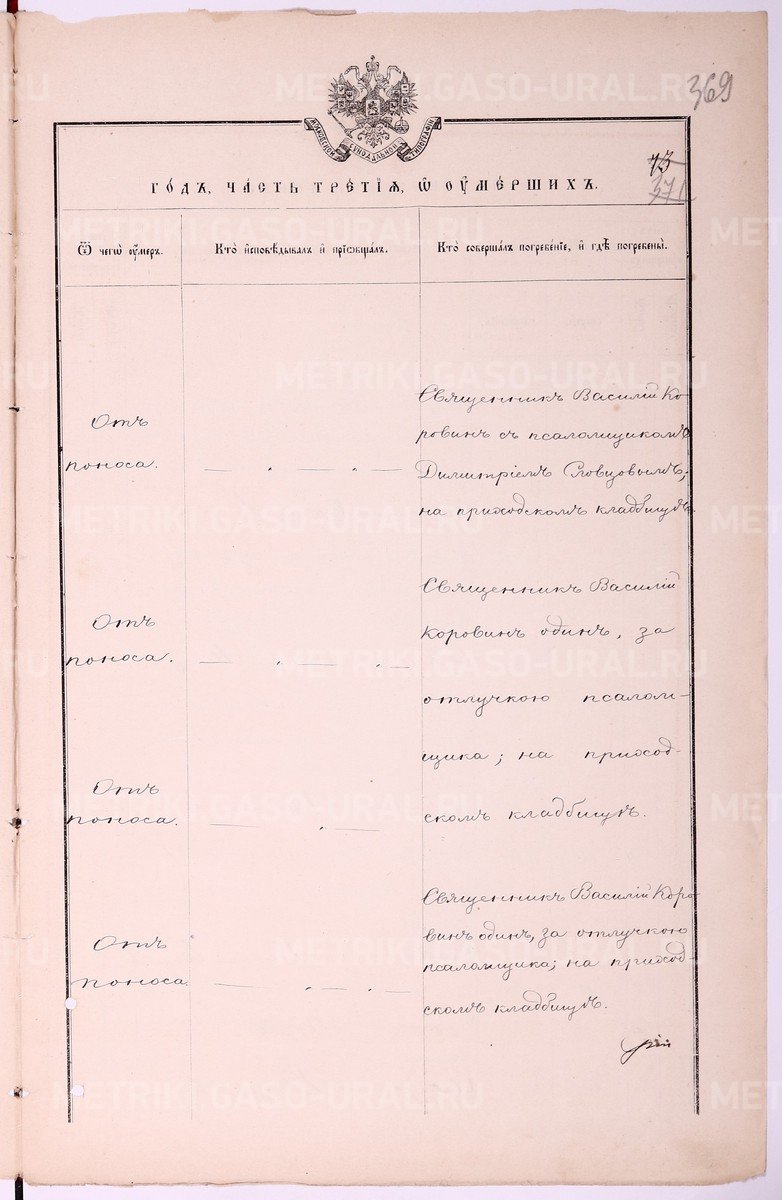 369
МОСКОВСКОЙ СѴНОДАЛЬНОЙ ТИПОГРАФІИ
75
371
ГО́ДЪ, ЧА́СТЬ ТРЕ́ТІѦ, Ѡ҆ ОУ҆МЕ́РШИХЪ.
Ѿ чегѡ̀ оу҆́меръ.
Кто̀ и҆сповѣ́дывалъ и҆ прїѡбща́лъ.
Кто̀ соверша́лъ погребе́нїе, и҆ гдѣ̀ погребены̀.
Отъ
поноса.
Священникъ Василій Ко-
ровинъ съ псаломщикомъ
Димитріемъ Словцовымъ;
на приходскомъ кладбищѣ.
Отъ
поноса.
Священникъ Василій
Коровинъ одинъ, за
отлучкою псалом-
щика; на приход-
скомъ кладбищѣ.
Отъ
поноса.
Отъ
поноса.
Священникъ Василій Коро-
винъ одинъ, за отлучкою
псаломщика; на приход-
скомъ кладбищѣ.
METRIKI.GASO-URAL.RU